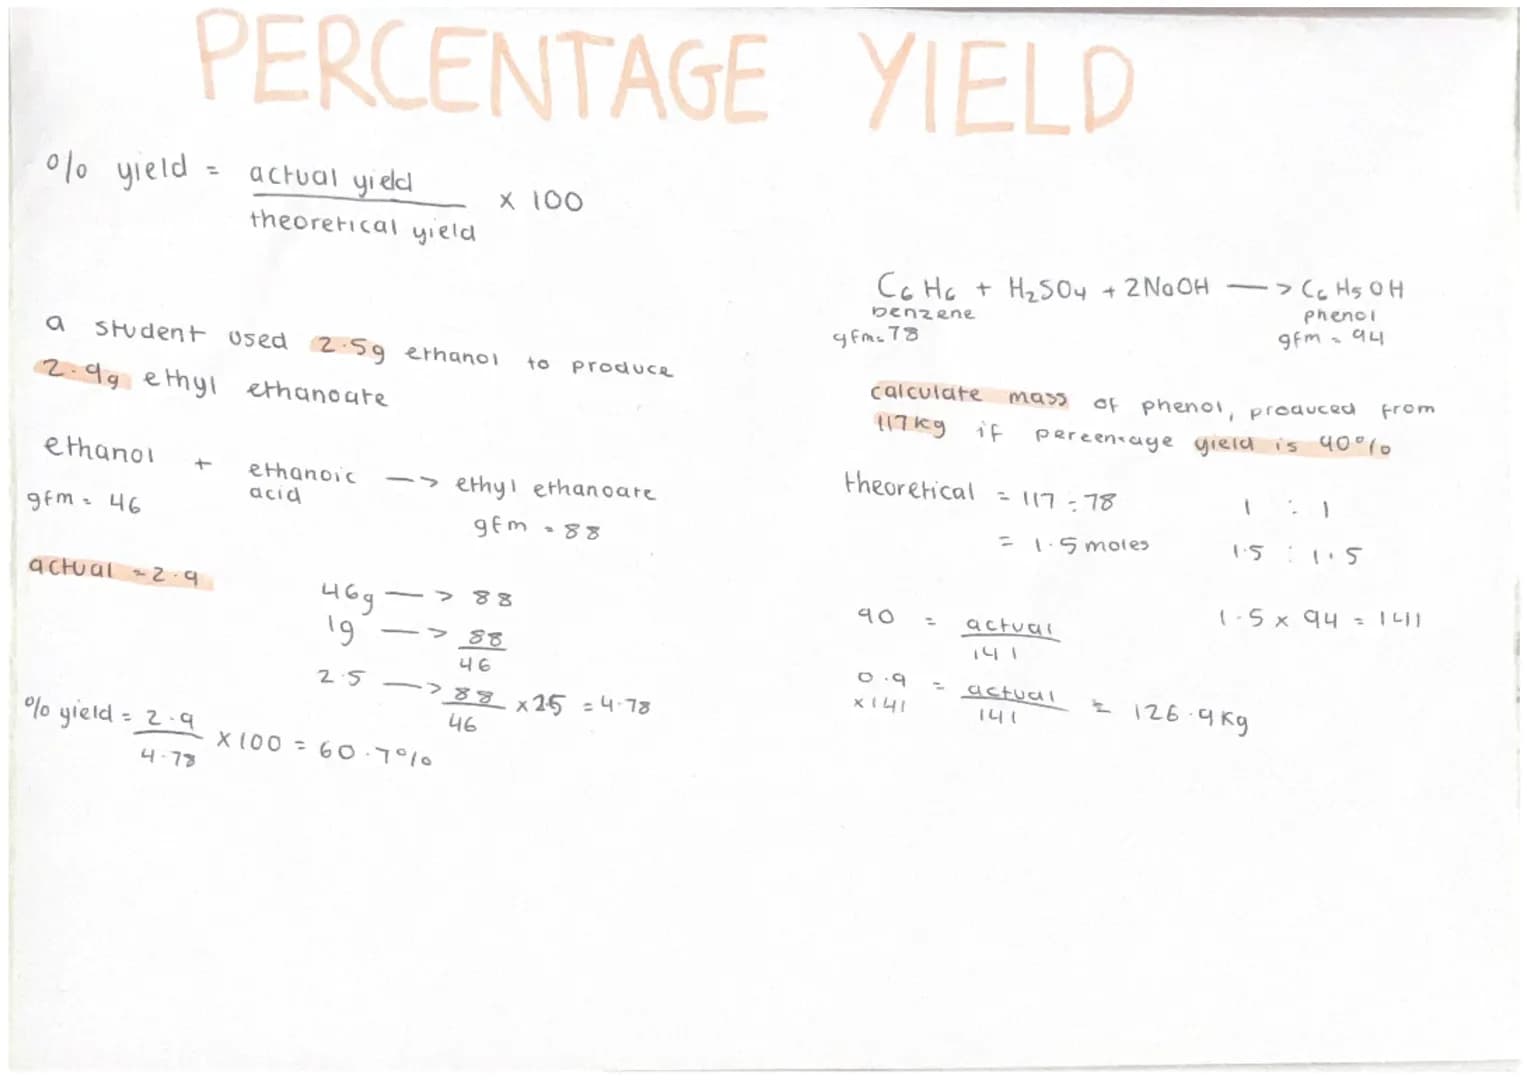 PERCENTAGE YIELD
% yield = actual yield / theoretical yield × 100
a student used 2.5g ethanol to produce
2.9g ethyl ethanoate
ethanol + ethanoic acid —> ethyl ethanoate
gfm = 46
gfm = 88
actual = 2.9
46g —> 88
1g —> 88/46
2.5 —> 88/46 × 2.5 = 4.78
% yield = 2.9/4.78 × 100 = 60.7%
C6H6 + H2SO4 + 2NaOH —> C6H5OH
benzene
phenol
gfm = 78
gfm = 94
calculate mass of phenol, produced from
117kg if percentage yield is 90%
theoretical = 117 ÷ 78
1 : 1
= 1.5 moles
1.5 : 1.5
1.5 × 94 = 141
90 = actual/141
0.9 = actual/141 = 126.9kg
×141